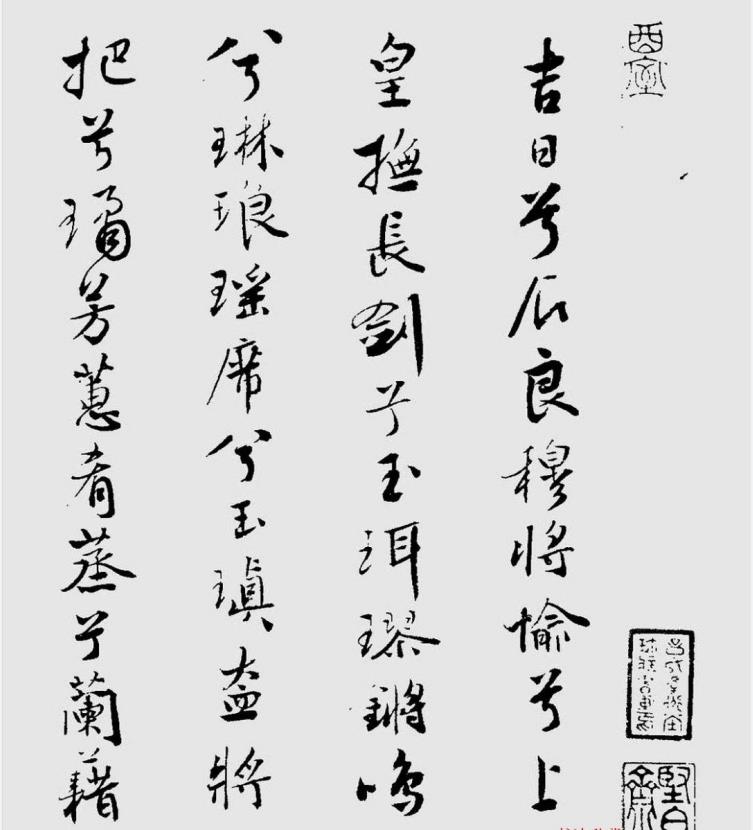 吉日兮辰良穆將愉兮上
皇撫長劍兮玉珥璆鏘鳴
兮琳琅瑤席兮玉瑱盍將
把兮璚芳蕙肴蒸兮蘭藉